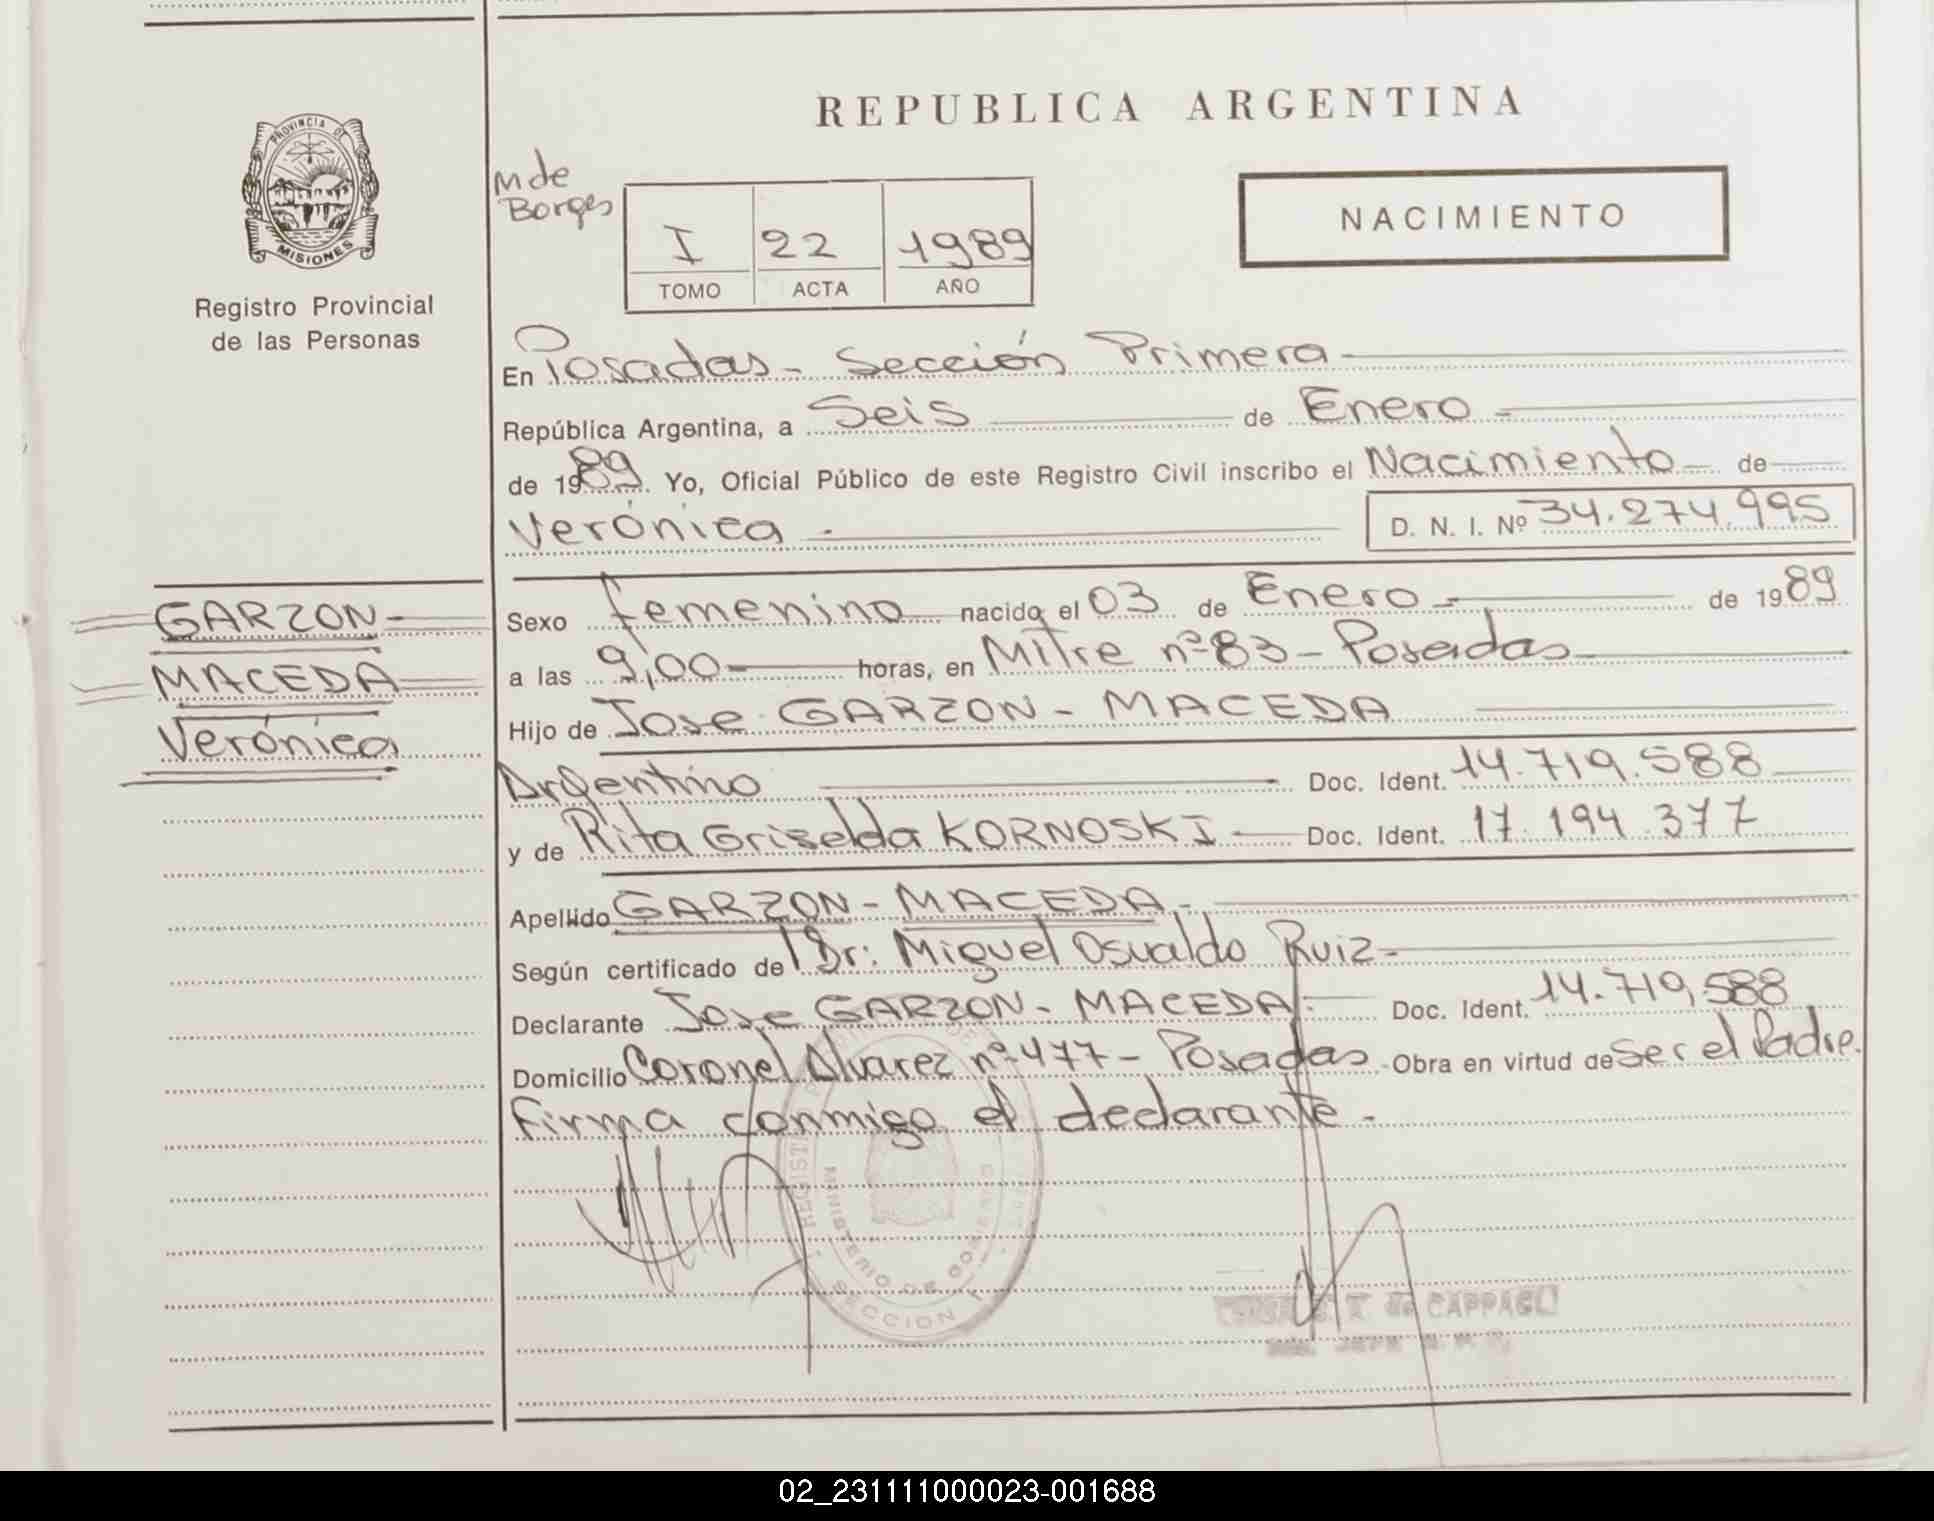 REPUBLICA ARGENTINA
PROVINCIA DE
MISIONES
Registro Provincial
de las Personas
M de
Borges
I 22 1989
TOMO ACTA AÑO
NACIMIENTO
En Posadas - Sección Primera
República Argentina, a Seis de Enero -
de 1989. Yo, Oficial Público de este Registro Civil inscribo el Nacimiento de
Verónica - D. N. I. Nº 34.274.995
GARZON -
MACEDA
Verónica
Sexo femenino nacido el 03 de Enero - de 1989
a las 9,00 - horas, en Mitre nº 83 - Posadas
Hijo de Jose GARZON - MACEDA
Argentino Doc. Ident. 14.719.588
y de Rita Griselda KORNOSKI - Doc. Ident. 17.194.377
Apellido GARZON - MACEDA -
Según certificado de l Dr: Miguel Osvaldo Ruiz -
Declarante Jose GARZON - MACEDA - Doc. Ident. 14.719.588
Domicilio Coronel Alvarez nº 477 - Posadas - Obra en virtud de Ser el Padre.
Firma conmigo el declarante -
MINISTERIO DE GOBIERNO
SECCION 1
de CAPPAGLI
02_231111000023-001688